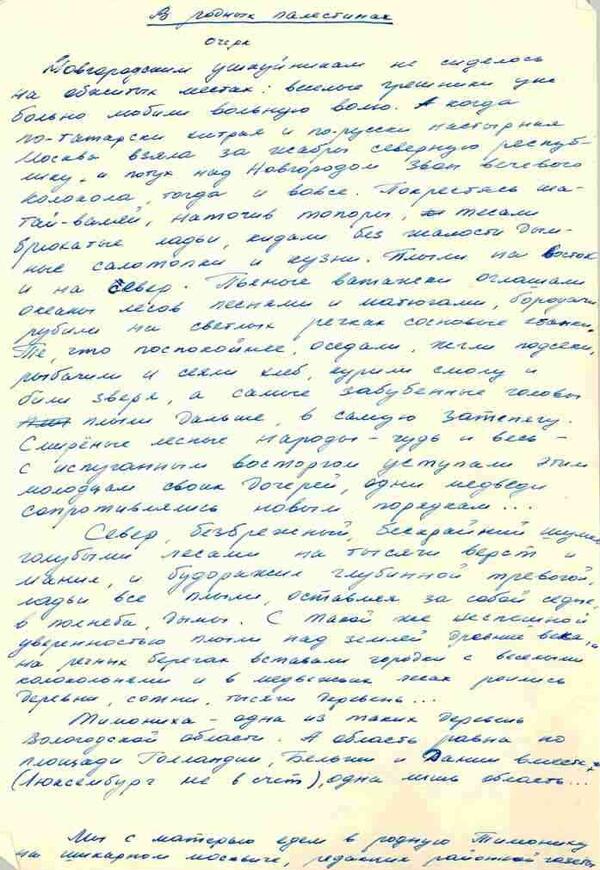 В родных палестинах
Очерк
Новгородским ушкуйникам не сиделось
на обжитых местах: веселые грешники уж
больно любили вольную волю. А когда
по-татарски хитрая и по-русски настырная
Москва взяла за жабры северную респуб-
лику и потух над Новгородом звон вечевого
колокола, тогда и вовсе. Покрестясь ша-
тай-валяй, наточив топоры, тесали
брюхатые ладьи, кидали без жалости дым-
ные салотопки и кузни. Плыли на восток
и на север. Пьяные ватажки оглашали
океаны лесов песнями и матюгами, бородачи
рубили на светлых речках сосновые станки.
Те, что поспокойнее, оседали, жгли подсеки,
рыбачили и сеяли хлеб, курили смолу и
били зверя, а самые забубенные головы
плыли дальше, в самую затепягу.
Смирёные лесные народы - чудь и весь -
с испуганным восторгом уступали этим
молодцам своих дочерей, одни медведи
сопротивлялись новым порядкам...
Север, безбрежный, бескрайний шумел
голубыми лесами на тысячи верст и
манил, и будоражил глубинной тревогой,
ладьи все плыли, оставляя за собой седые,
в полнеба, дымы. С такой же неспешной
уверенностью плыли над землей древние века,
на речных берегах вставали городки с веселыми
колокольнями и в медвежьих лесах роились
деревни, сотни, тысячи деревень...
Тимониха - одна из таких деревень
Вологодской области. А область равна по
площади Голландии, Бельгии и Дании вместе
(Люксембург не в счет), одна лишь область...
Мы с матерью едем в родную Тимониху
на шикарном москвиче, редакции районной газеты